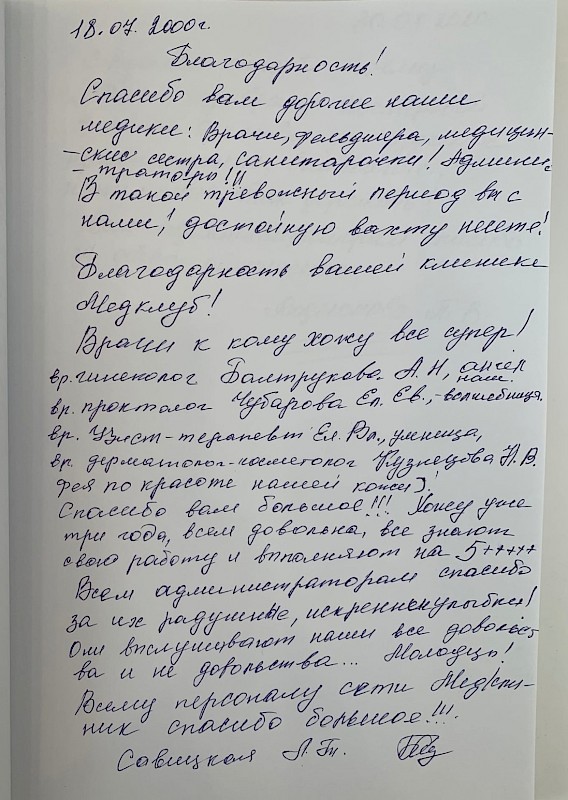 18.07.2000г.
Благодарность!
Спасибо вам дорогие наши
медики: Врачи, фельдшера, медицин-
-ские сестра, санитарочки! Админис
-траторы!!!
В такой тревожный период вы с
нами, достойную вахту несете!
Благодарность вашей клинике
Медклуб!
Врачи к кому хожу все супер!
вр. гинеколог Балтрукова А.Н, ангел
наш.
вр. проктолог Чубарова Ел. Ев., -волшебница.
вр. Узист-терапевт Ел. Вл., умница,
вр. дерматолог-косметолог Кузнецова Н.В.
фея по красоте нашей кожи)!
Спасибо вам большое!!! Хожу уже
три года, всем довольна, все знают
свою работу и выполняют на 5+++++
Всем администраторам спасибо
за их радушные, искренние улыбки!
Они выслушивают наши все довольст-
ва и не довольства... Молодцы!
Всему персоналу сети
спасибо большое!!!
Савицкая Л. Гн.